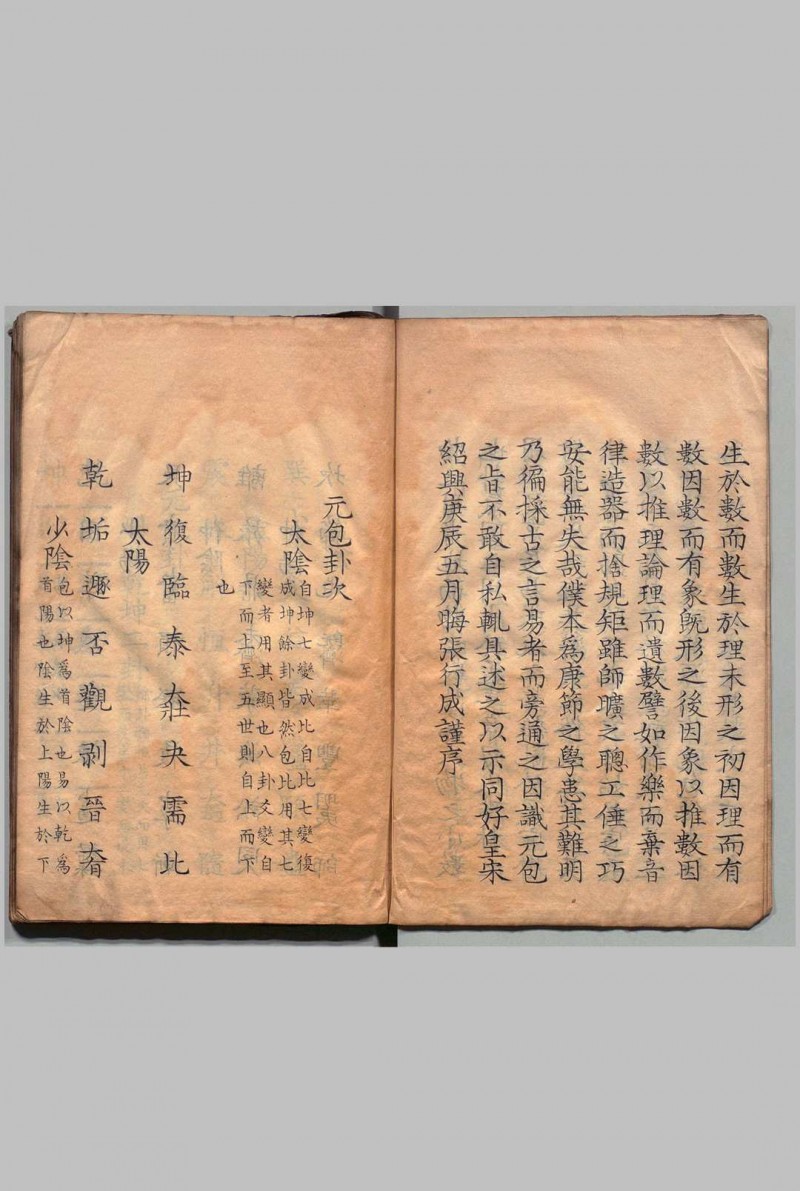 生於數而數生於理未形之初因理而有
數因數而有象旣形之後因象以推數因
數以推理論理而遺數譬如作樂而棄音
律造器而捨規矩雖師曠之聰工倕之巧
安能無失哉僕本爲康節之學患其難明
乃徧採古之言易者而旁通之因識元包
之旨不敢自私輒具述之以示同好皇宋
紹興庚辰五月晦張行成謹序
元包卦次
太陰 自坤七變成比自比七變復
成坤餘卦皆然包比用其七
變者用其顯也八卦爻變自
下而上至五世則自上而下
也
坤復臨泰大壯夬需比
太陽
乾垢遯否觀剥晉大有
少陰 包以坤爲首陰也易以乾爲
首陽也陰生於上陽生於下